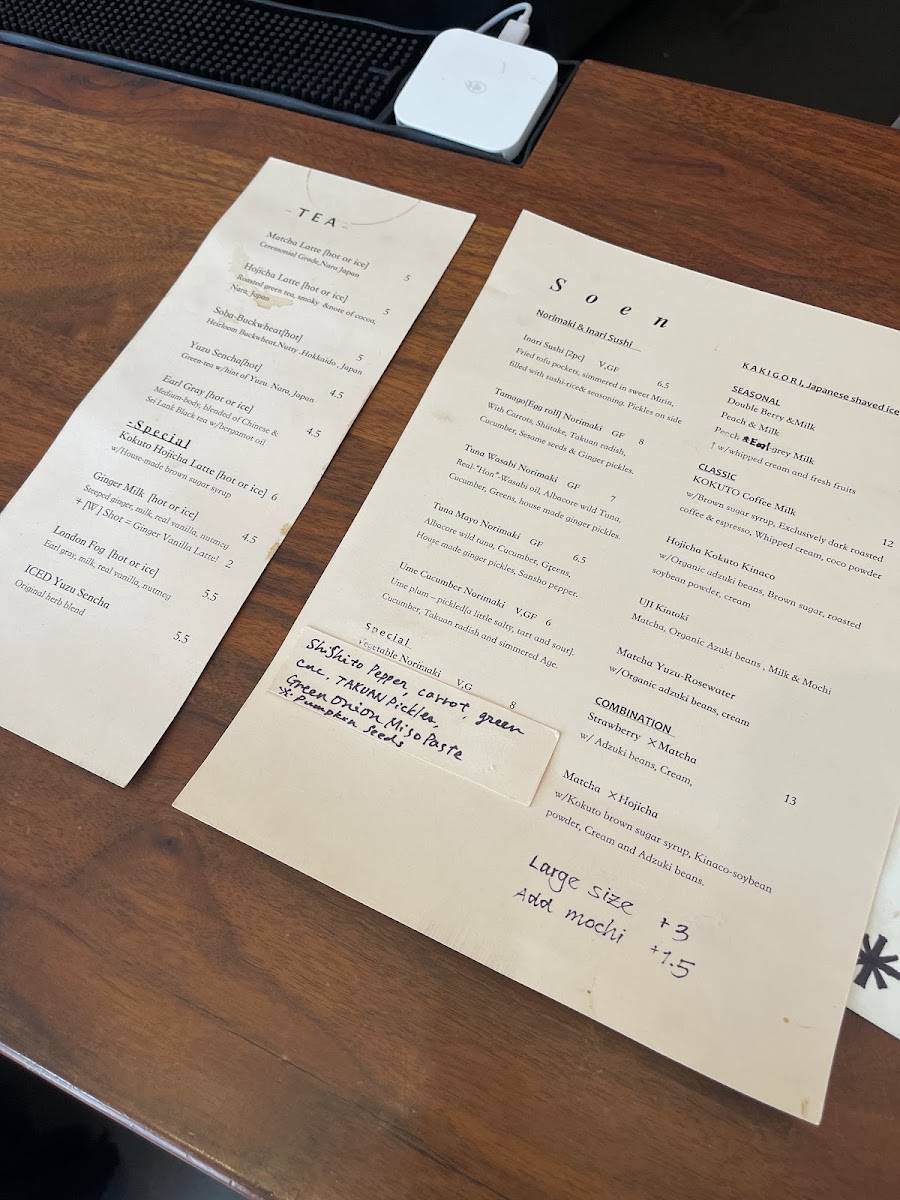 - TEA -
Matcha Latte [hot or ice]
Ceremonial Grade,Nara Japan 5
Hojicha Latte [hot or ice]
Roasted green tea, smoky &note of cocoa, 5
Nara, Japan
Soba-Buckwheat[hot]
Heirloom Buckwheat.Nutty .Hokkaido , Japan 5
Yuzu Sencha[hot]
Green-tea w/hint of Yuzu. Nara, Japan 4.5
Earl Gray [hot or ice]
Medium-body, blended of Chinese & 4.5
Sri Lank Black tea w/bergamot oil
-Special
Kokuto Hojicha Latte [hot or ice] 6
w/House-made brown sugar syrup
Ginger Milk [hot or ice]
Steeped ginger, milk, real vanilla, nutmeg 4.5
+ [W ] Shot = Ginger Vanilla Latte! 2
London Fog [hot or ice]
Earl gray, milk, real vanilla, nutmeg 5.5
ICED Yuzu Sencha
Original herb blend 5.5
Soen
Norimaki & Inari Sushi
Inari Sushi [2pc] V,GF 6.5
Fried tofu pockets, simmered in sweet Mirin,
filled with sushi-rice& seasoning. Pickles on side
Tamago[Egg roll] Norimaki GF 8
With Carrots, Shiitake, Takuan radish,
Cucumber, Sesame seeds & Ginger pickles.
Tuna Wasabi Norimaki GF 7
Real-"Hon"-Wasabi oil, Albacore wild Tuna,
Cucumber, Greens, house made ginger pickles.
Tuna Mayo Norimaki GF 6.5
Albacore wild tuna, Cucumber, Greens,
House made ginger pickles, Sansho pepper.
Ume Cucumber Norimaki V,GF 6
Ume plum – pickled[a little salty, tart and sour].
Cucumber, Takuan radish and simmered Age.
Special
Vegetable Norimaki V,G 8
Shishito Pepper, carrot, green
cuc, TAKUAN Pickles,
Green Onion Miso Paste
※ Pumpken Seeds
KAKIGORI, Japanese shaved ice
SEASONAL
Double Berry &Milk
Peach & Milk
Peach & Earl grey Milk
↑ w/whipped cream and fresh fruits
CLASSIC
KOKUTO Coffee Milk
w/Brown sugar syrup, Exclusively dark roasted
coffee & espresso, Whipped cream, coco powder 12
Hojicha Kokuto Kinaco
w/Organic adzuki beans, Brown sugar, roasted
soybean powder, cream
UJI Kintoki
Matcha, Organic Azuki beans , Milk & Mochi
Matcha Yuzu-Rosewater
w/Organic adzuki beans, cream
COMBINATION
Strawberry ×Matcha
w/ Adzuki beans, Cream, 13
Matcha ×Hojicha
w/Kokuto brown sugar syrup, Kinaco-soybean
powder, Cream and Adzuki beans.
Large size +3
Add mochi +1.5